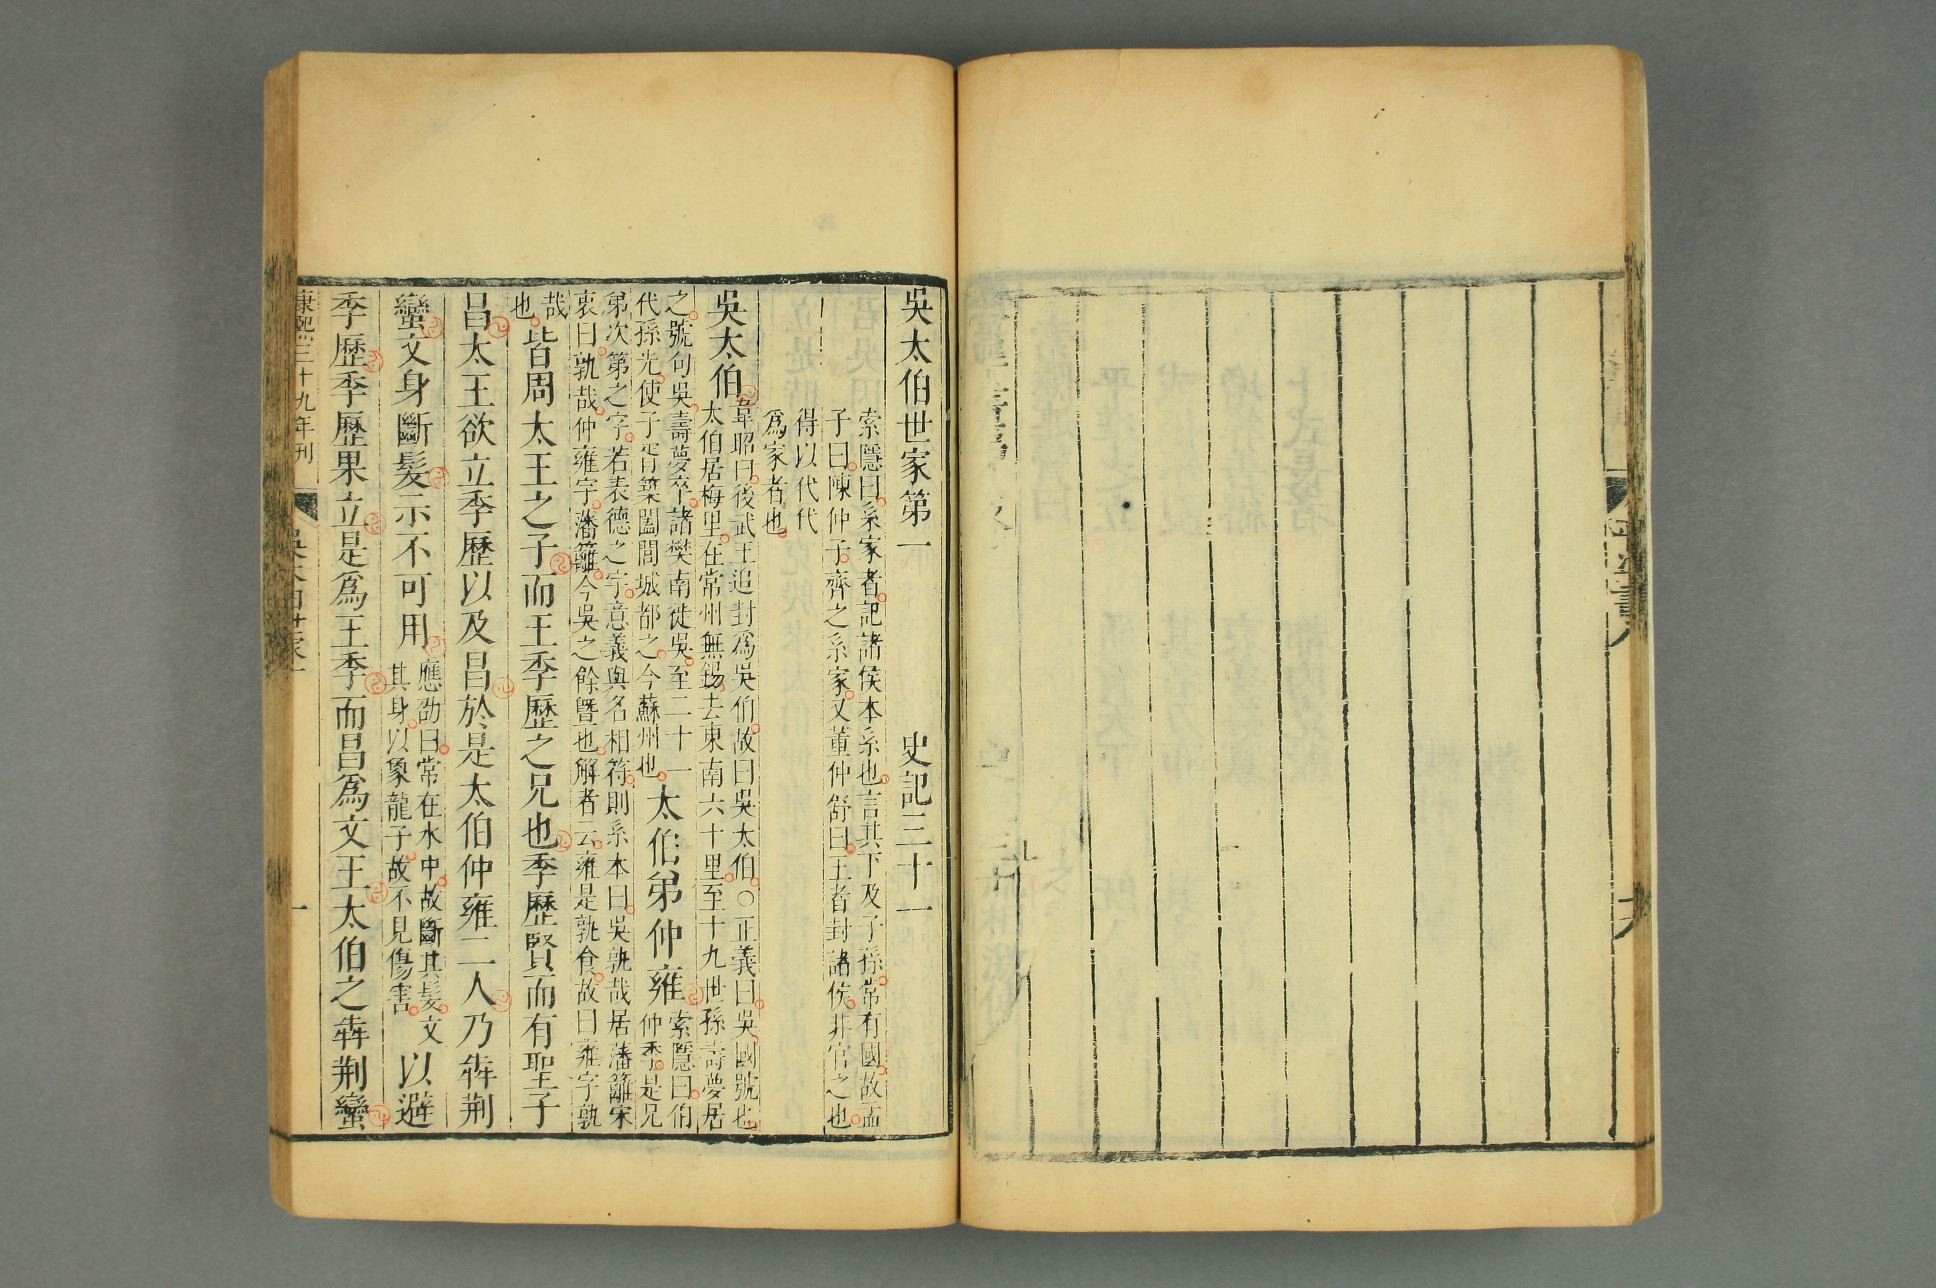 平準書八
吳太伯世家第一 史記三十一
索隱曰系家者記諸侯本系也言其下及子孫常有國故孟
子曰陳仲子齊之系家又董仲舒曰王者封諸侯非官之也
得以代代
爲家者也
吳太伯
韋昭曰後武王追封爲吳伯故曰吳太伯○正義曰吳國號也
太伯居梅里在常州無錫去東南六十里至十九世孫壽夢居
之號句吳壽夢卒諸樊南徙吳至二十一
代孫光使子胥築闔閭城都之今蘇州也
太伯弟仲雍
索隱曰伯
仲季是兄
弟次第之字若表德之字意義與名相符則系本曰吳孰哉居藩籬宋
衷曰孰哉仲雍字藩籬今吳之餘曁也解者云雍是孰食故曰雍字孰
哉
也
皆周太王之子而王季歷之兄也季歷賢而有聖子
昌太王欲立季歷以及昌於是太伯仲雍二人乃犇荆
蠻文身斷髮示不可用
應劭曰常在水中故斷其髮文
其身以象龍子故不見傷害
以避
季歷季歷果立是爲王季而昌爲文王太伯之犇荆蠻
康熙三十九年刊
吳太伯世家
一